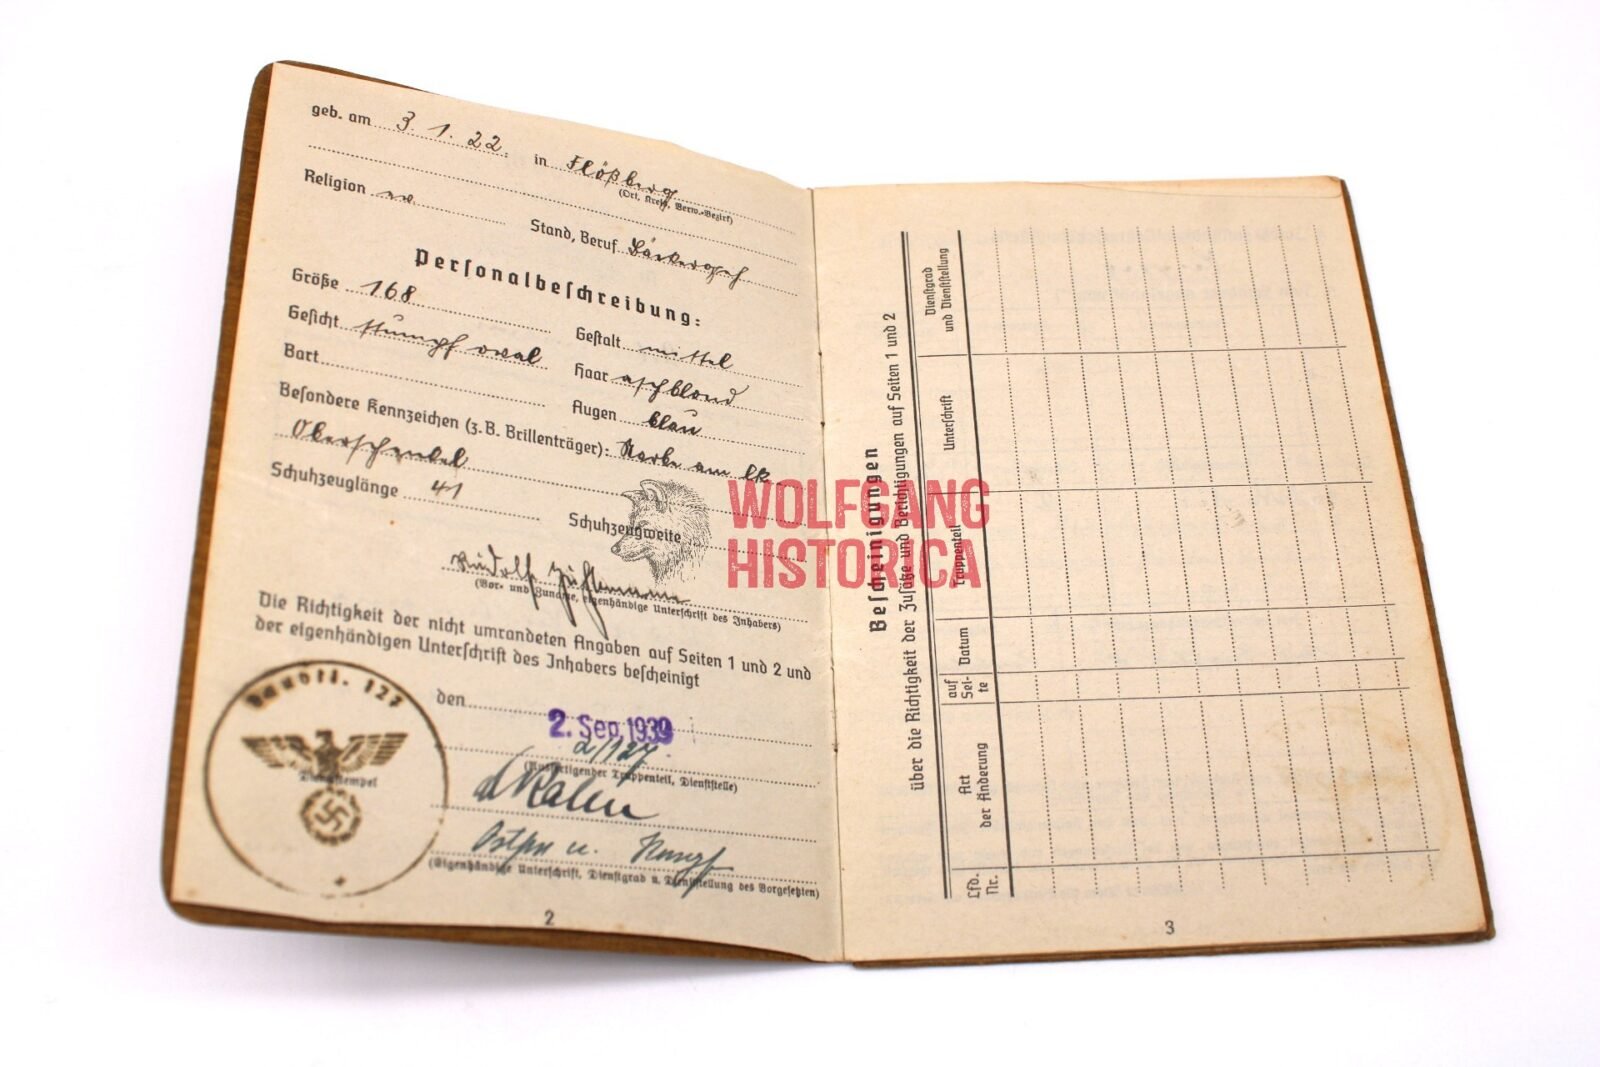 geb. am 3. 1. 22. in Flößberg
(Ort, Kreis, Verw.-Bezirk)
Religion ev
Stand, Beruf
Personalbeschreibung:
Größe 168 Gestalt mittel
Gesicht stumpf oval Haar aschblond
Bart Augen blau
Besondere Kennzeichen (z. B. Brillenträger): Narbe am lk
Oberschenkel
Schuhzeuglänge 41 Schuhzeugweite
Rudolf
(Vor- und Zuname, eigenhändige Unterschrift des Inhabers)
Die Richtigkeit der nicht umrandeten Angaben auf Seiten 1 und 2 und
der eigenhändigen Unterschrift des Inhabers bescheinigt
den 2. Sep. 1939
2/127.
(Ausfertigender Truppenteil, Dienststelle)
u.
(Eigenhändige Unterschrift, Dienstgrad u. Dienststellung des Vorgesetzten)
Baubtl. 127
Dienststempel
2
Bescheinigungen
über die Richtigkeit der Zusätze und Berichtigungen auf Seiten 1 und 2
Lfd. Nr.
Art der Änderung
auf Sei- te
Datum
Truppenteil
Unterschrift
Dienstgrad und Dienststellung
3
WOLFGANG
HISTORICA